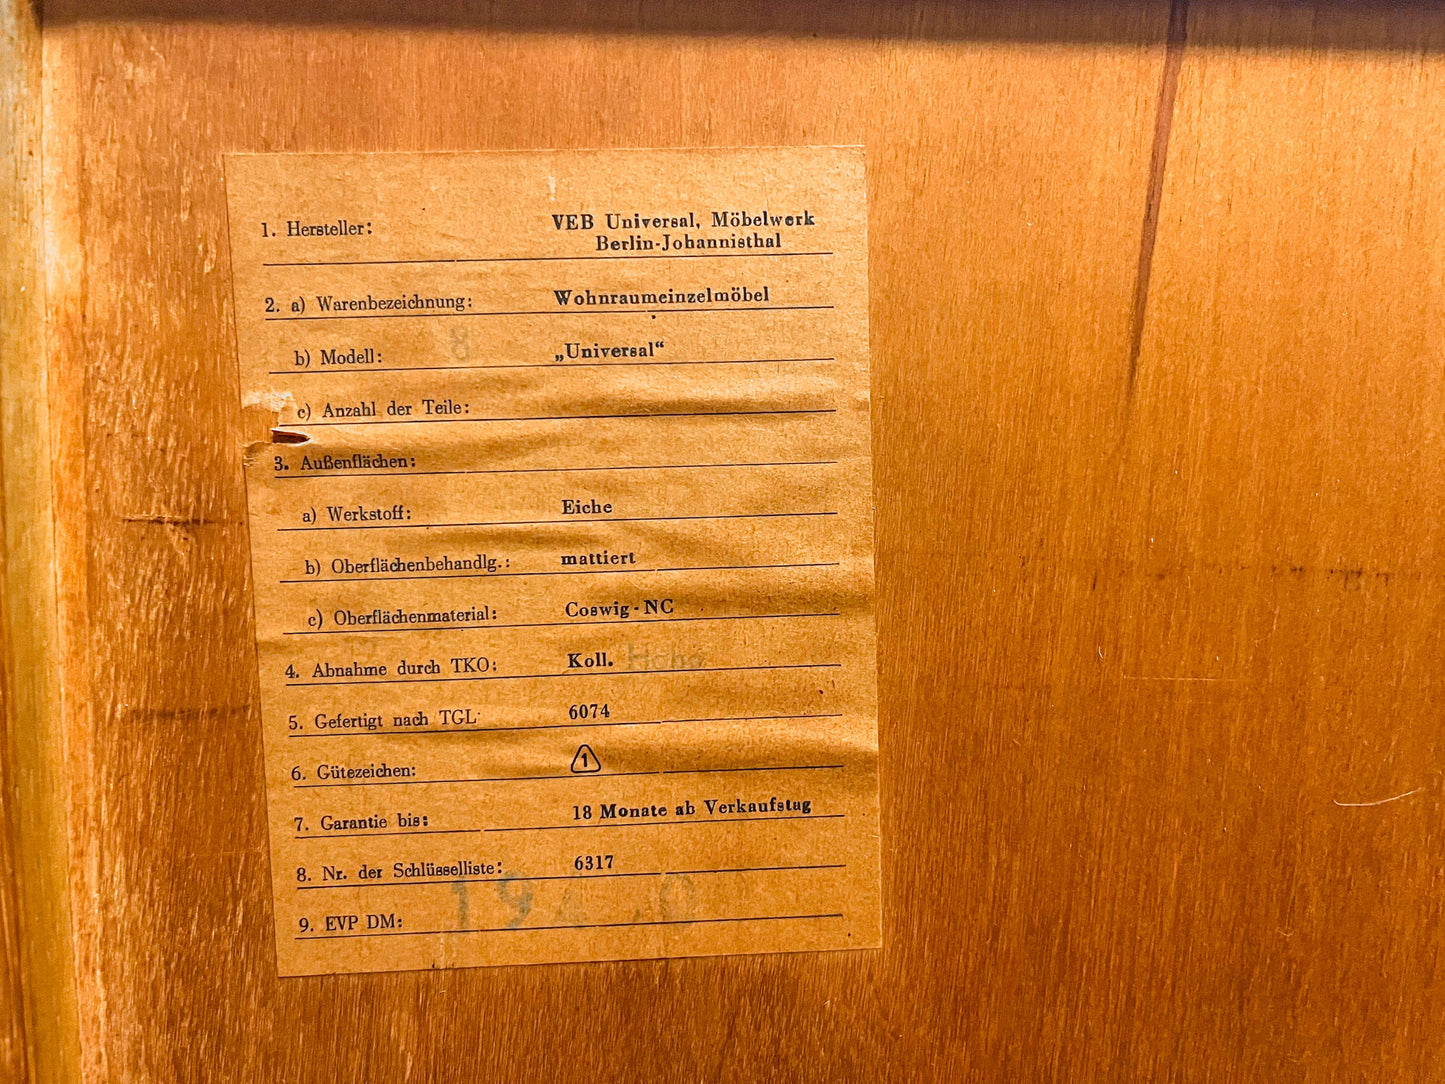 1. Hersteller: VEB Universal, Möbelwerk
Berlin-Johannisthal
2. a) Warenbezeichnung: Wohnraumeinzelmöbel
b) Modell: 8 „Universal“
c) Anzahl der Teile:
3. Außenflächen:
a) Werkstoff: Eiche
b) Oberflächenbehandlg.: mattiert
c) Oberflächenmaterial: Coswig-NC
4. Abnahme durch TKO: Koll.
5. Gefertigt nach TGL 6074
6. Gütezeichen: 1
7. Garantie bis: 18 Monate ab Verkaufstag
8. Nr. der Schlüsselliste: 6317
9. EVP DM: